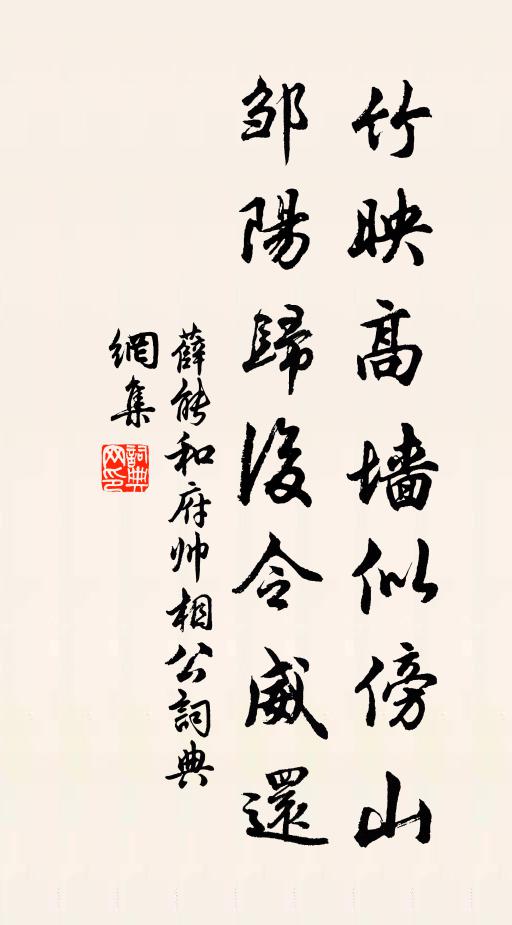 竹映高墻似傍山
邹陽歸後令威還
薛能和府帅相公詞典
網集
詞典網印